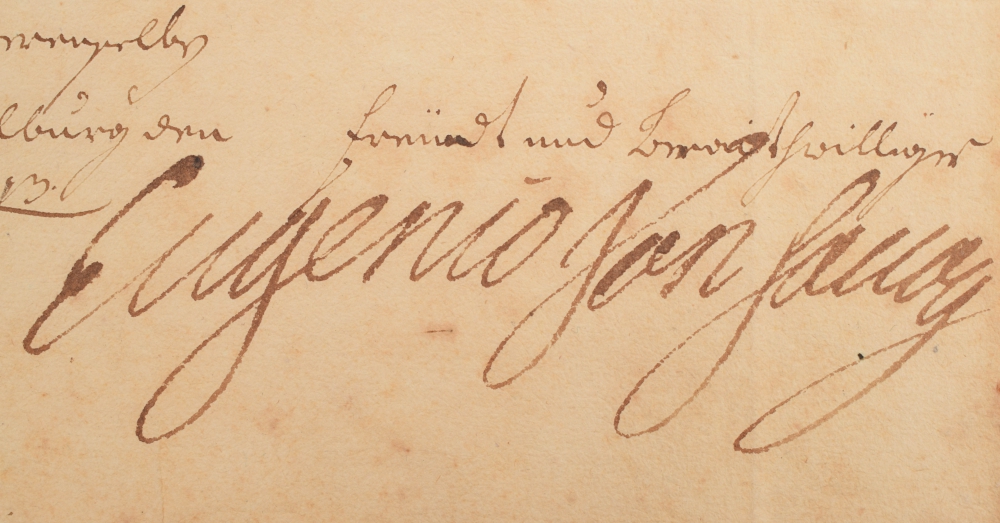 lburg den freündt und Bereithwilliger
Eugenio von Savoy